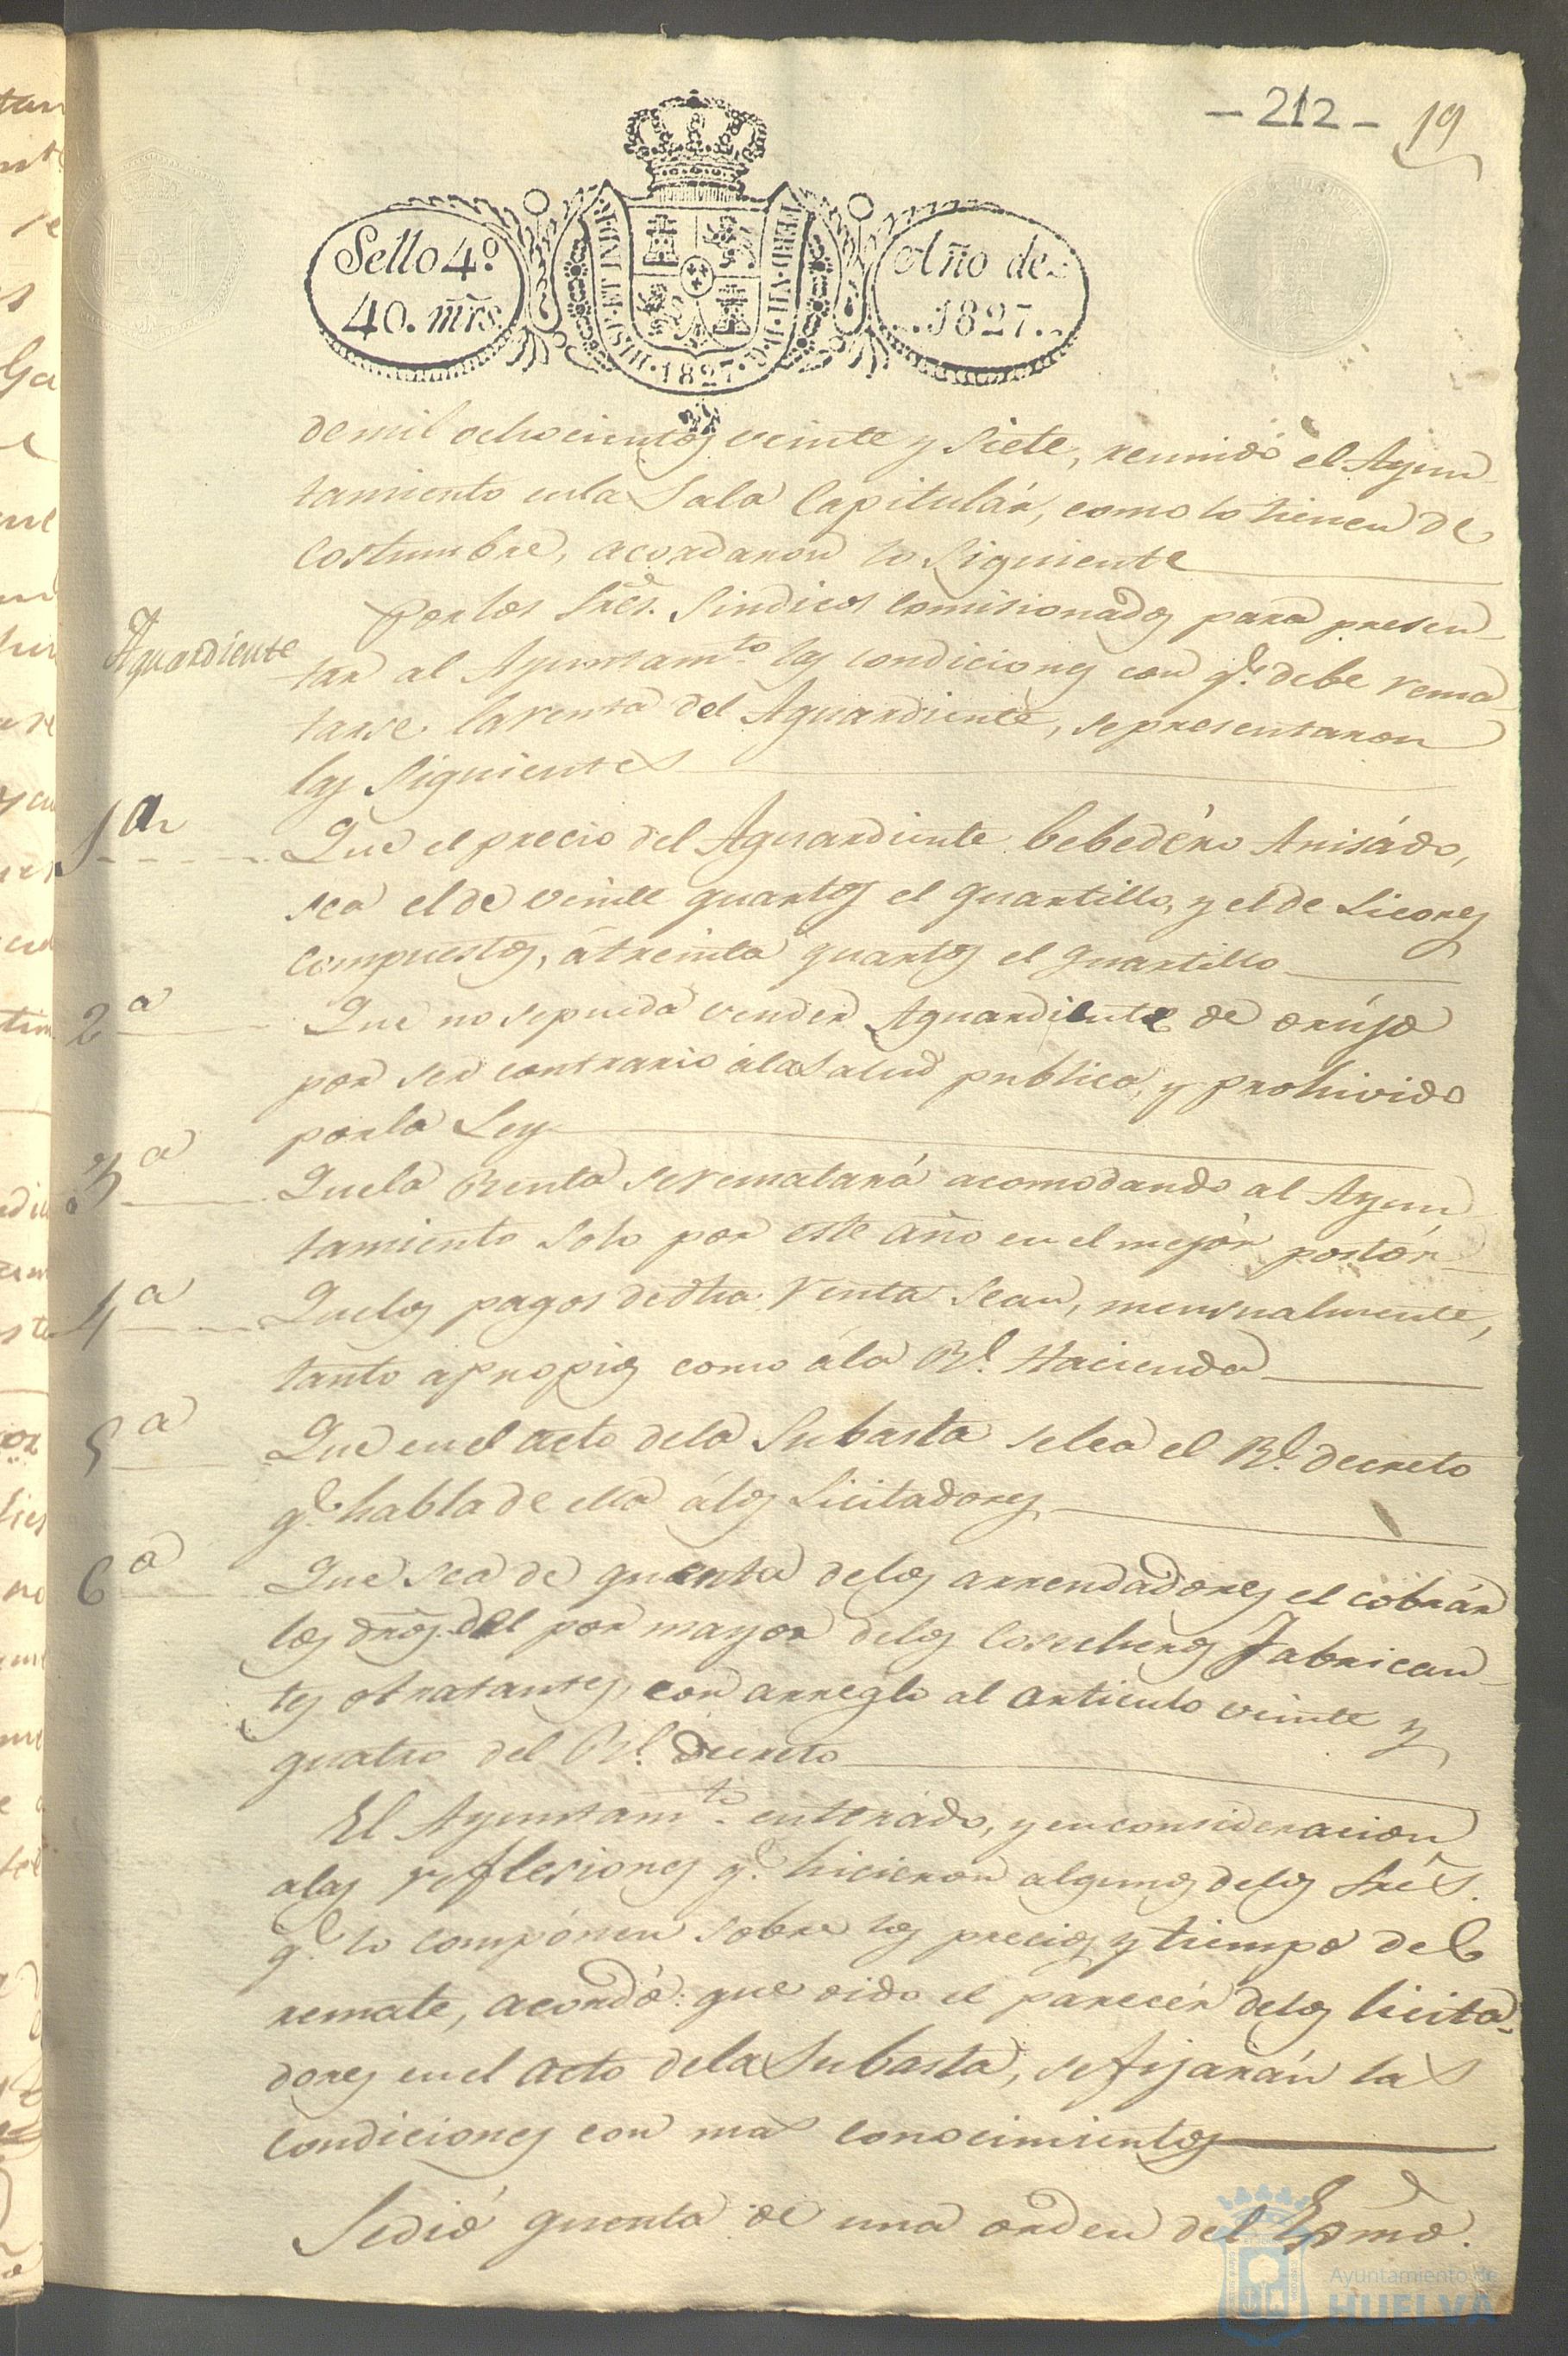 - 212 - 19
Sello 4º
40. mrs.
HISP. ET IND. R.
FERD. VII. D. G.
· 1827 ·
Año de
1827.
de mil ochocientos veinte y siete, reunido el Ayun
tamiento en la Sala Capitulár, como lo tienen de
costumbre, acordaron lo siguiente
Aguardiente
Por los Sres. Sindicos comisionados para presen
tar al Ayuntamto. las condiciones con qe. debe rema
tarse la renta del Aguardiente, se presentaron
las siguientes
1ª
Que el precio del Aguardiente bebedéro Anisádo,
sea el de veinte quartos el quartillo, y el de Licores
compuestos, á treinta quartos el quartillo
2ª
Que no se pueda vender Aguardiente de orújo
por ser contrario a la salud publica, y prohivido
por la Ley
3ª
Que la Renta se rematará acomodando al Ayun
tamiento solo por este año en el mejór postór
4ª
Que los pagos de dha. Renta sean, mensualmente,
tanto a propios como á la Rl. Hacienda
5ª
Que en el acto de la Subasta se lea el Rl. decreto
qe. habla de ella á los Licitadores
6ª
Que sea de quenta de los arrendadores el cobrár
los dros. del por mayor de los Cosecheros Fabrican
tes o tratantes, con arreglo al articulo veinte y
quatro del Rl. decreto
El Ayuntamto. enterádo, y en consideracion
a las reflesiones qe. hicieron algunos de los Sres.
qe. lo compónen sobre los precios y tiempo del
remate, acordó: que oido el parecér de los licita-
dores en el acto de la Subasta, se fijarán las
condiciones con mas conocimientos
Se dió quenta de una orden del Exmo.
Ayuntamiento de
HUELVA